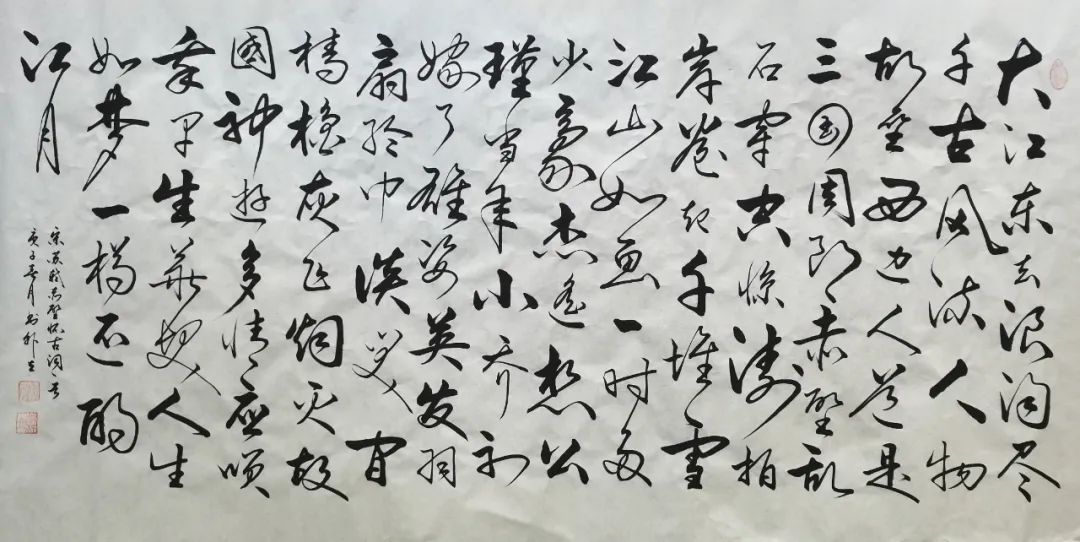 大江东去浪淘尽
千古风流人物
故垒西边人道是
三国周郎赤壁乱
石穿空惊涛拍
岸卷起千堆雪
江山如画一时多
少豪杰遥想公
瑾当年小乔初
嫁了雄姿英发羽
扇纶巾谈笑间
樯橹灰飞烟灭故
國神遊多情应咲
我早生華发人生
如梦一樽还酹
江月
宋苏轼赤壁怀古词一首
庚子春月书